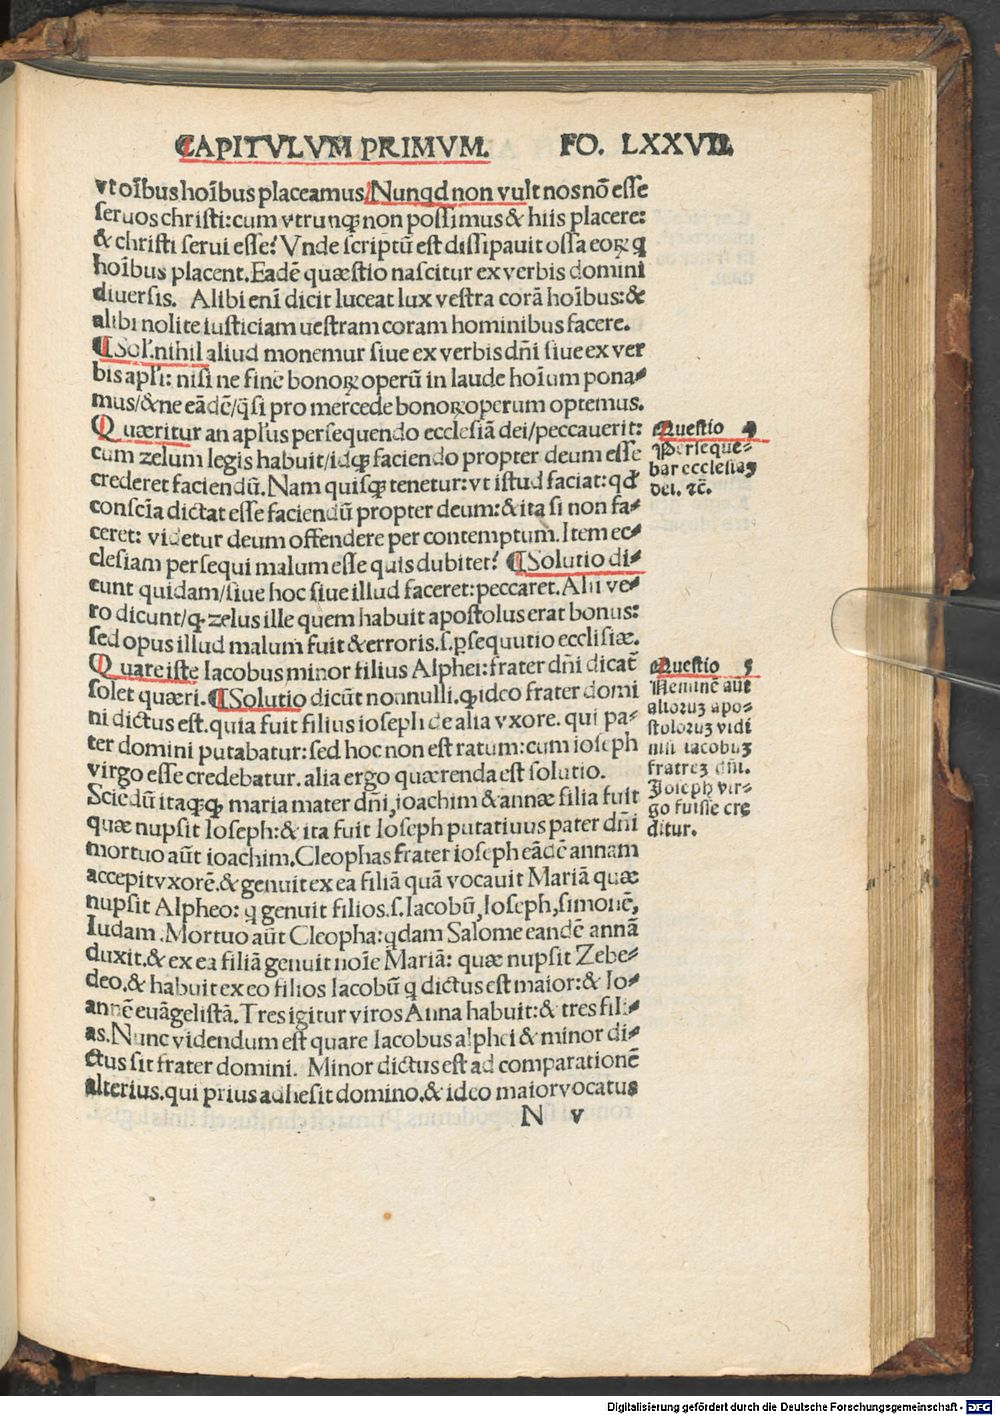 CAPITVLVM PRIMVM. FO. LXXVII.
vt oība hoībus placeamus. Nunqd non vult nos nō esse
seruos christi: cum vtrunqꝫ non possimus & hiis placere:
& christi serui esse? Vnde scriptū est dissipauit ossa eoꝝ q
hoībus placent. Eadē quæstio nascitur ex verbis domini
diuersis. Alibi eni dicit luceat lux vestra corā hoībus: &
alibi nolite iusticiam uestram coram hominibus facere.
¶ Sol'. nihil aliud monemur siue ex verbis dñi siue ex ver
bis apłi: nisi ne finē bonoꝝ operū in laude hoīum pona⸗
mus/ & ne eādē/ q̄si pro mercede bonoꝝ operum optemus.
Quæritur an apłus persequendo ecclesiā dei/ peccauerit:
cum zelum legis habuit/ idqꝫ faciendo propter deum esse
crederet faciendū. Nam quisqꝫ tenetur: vt istud faciat: qđ
conscīa dictat esse faciendū propter deum: & ita si non fa⸗
ceret: videtur deum offendere per contemptum. Item ec⸗
clesiam persequi malum esse quis dubitet? ¶ Solutio di⸗
cunt quidam/ siue hoc siue illud faceret: peccaret. Alii ve⸗
ro dicunt/ ꝙ zelus ille quem habuit apostolus erat bonus:
sed opus illud malum fuit & erroris. s. ꝑsequutio ecclisiæ.
Quare iste Iacobus minor filius Alphei: frater dñi dicat̄
solet quæri. ¶ Solutio dicūt nonnulli. ꝙ ideo frater domi
ni dictus est. quia fuit filius ioseph de alia vxore. qui pa⸗
ter domini putabatur: sed hoc non est ratum: cum ioseph
virgo esse credebatur. alia ergo quærenda est solutio.
Sciēdū itaqꝫ ꝙ maria mater dñi, ioachim & annæ filia fuit
quæ nupsit Ioseph: & ita fuit Ioseph putatiuus pater dñi
mortuo aūt ioachim. Cleophas frater ioseph eādē annam
accepit vxorē. & genuit ex ea filiā quā vocauit Mariā quæ
nupsit Alpheo: q genuit filios. s. Iacobū, Ioseph, simonē,
Iudam. Mortuo aūt Cleopha: qdam Salome eandē annā
duxit. & ex ea filiā genuit noīe Mariā: quæ nupsit Zebe⸗
deo. & habuit ex eo filios Iacobū q dictus est maior: & Io⸗
annē euāgelistā. Tres igitur viros Anna habuit: & tres fili⸗
as. Nunc videndum est quare Iacobus alphei & minor di⸗
ctus sit frater domini. Minor dictus est ad comparationē
alterius. qui prius adhesit domino. & ideo maior vocatus
N v
Questio 4
Perseque⸗
bar ecclesiaꝫ
dei. ꝛc̄.
Questio 5
Neminē aut
alioruꝫ apo⸗
stoloruꝫ vidi
nisi iacobuꝫ
fratreꝫ dñi.
Ioseph vir⸗
go fuisse cre
ditur.
Digitalisierung gefördert durch die Deutsche Forschungsgemeinschaft - DFG